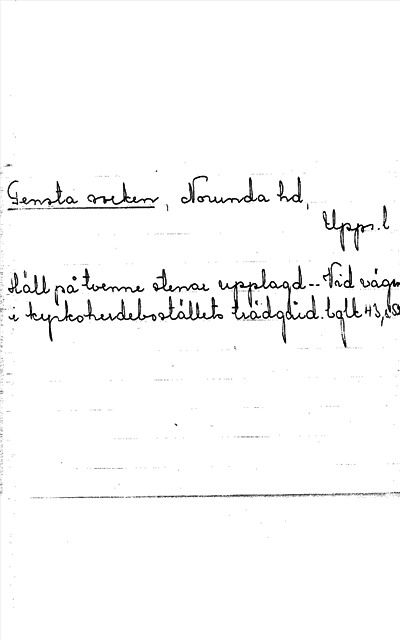 Gensta socken, Norunda hd,
Upps. l
Häll på tvenne stenar upplagd -- Vid vägen
i kyrkoherdeboställets trädgård. bglk 43,